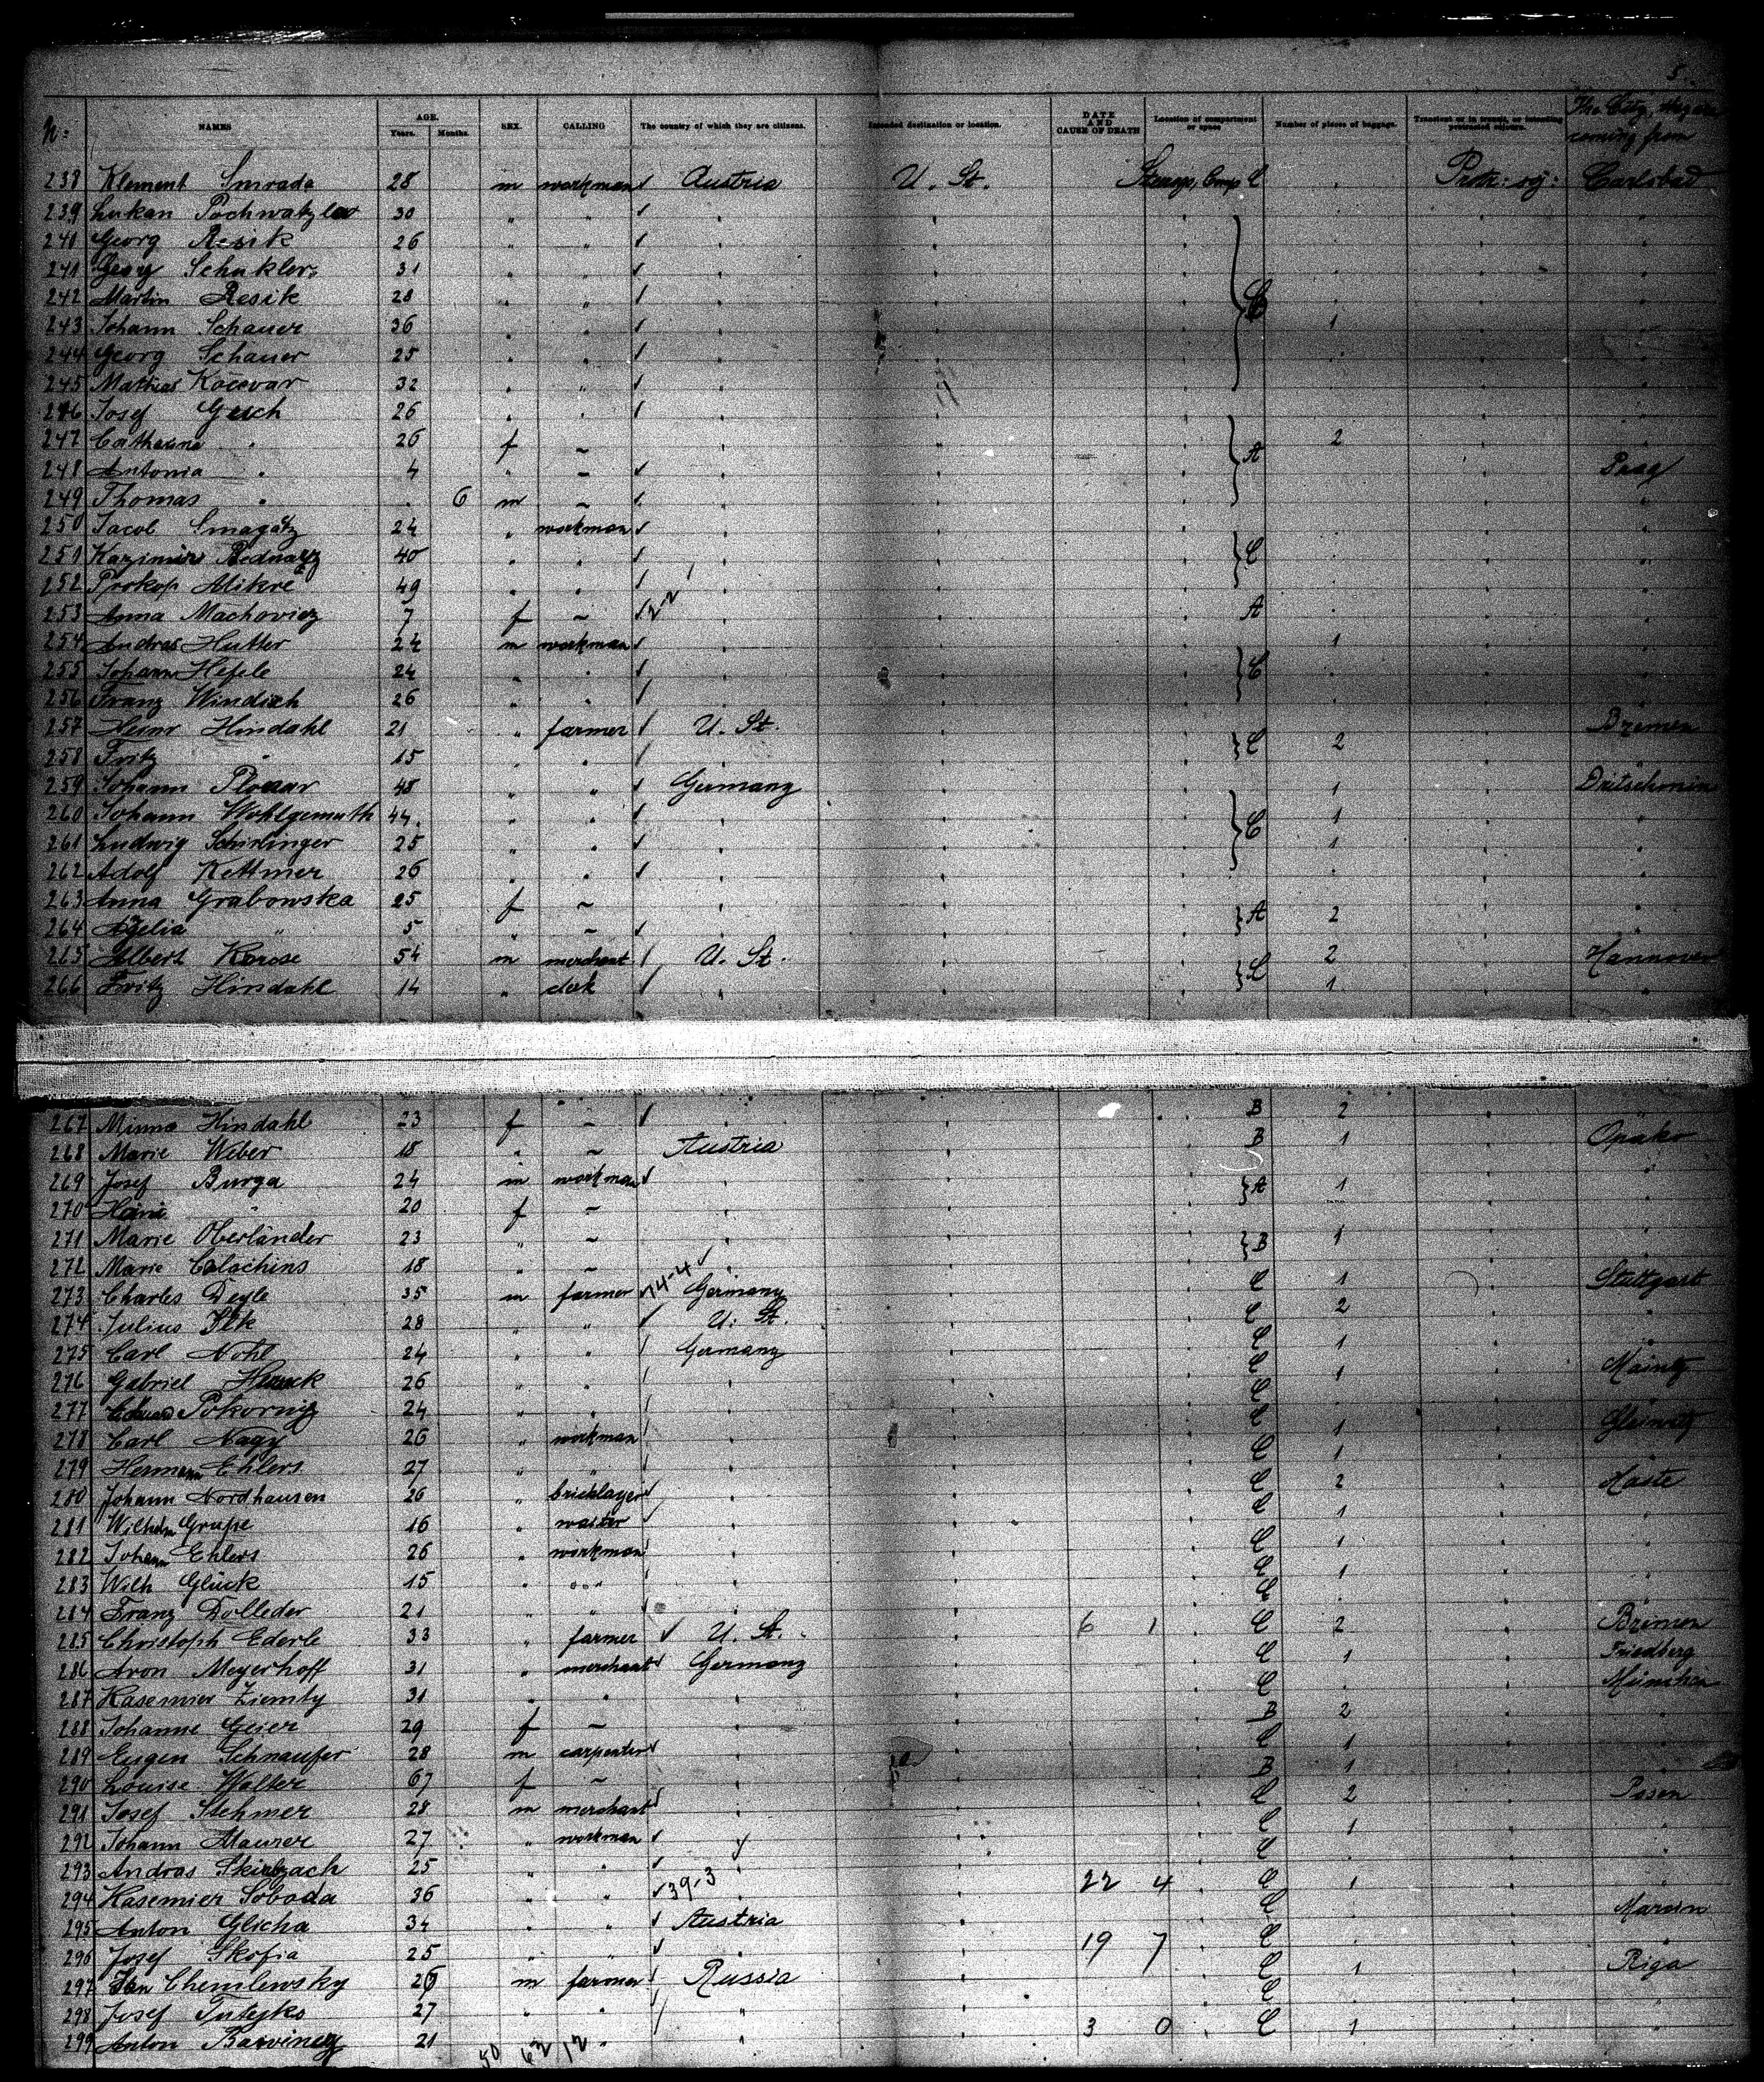 5.
N: NAMES AGE. Years. Months. SEX. CALLING The country of which they are citizens. Intended destination or location. DATE AND CAUSE OF DEATH Location of compartment or space Number of pieces of baggage. Transient or in transit, or intending protracted sojourn. The City, they are coming from
238 Klement Smrada 28 m workman Austria U. St. Carlsbad
239 Lukan 30 " "
240 Georg Resik 26 " "
241 Georg 31 " "
242 Martin Resik 28 " "
243 Johann Schauer 36 " " 1
244 Georg Schauer 25 " "
245 Mathias Kočevar 32 " "
246 Josef 26 " "
247 Catharine " 26 f ~ A 2
248 Antonia " 4 " ~ Prag
249 Thomas " 6 m ~
250 Jacob 24 " workman
251 40 " " C
252 Prokop 49 " "
253 Anna Machovicz 7 f ~ A
254 Andras Hutter 24 m workman 1
255 Johann Hefele 24 " " C
256 Franz Windisch 26 " "
257 Heinr Hindahl 21 " farmer U. St. Bremen
258 Fritz " 15 " " C 2
259 Johann 48 " " Germany 1
260 Johann Wohlgemuth 44 " " 1
261 Ludwig Schirlinger 25 " " C 1
262 Adolf Kettmer 26 " "
263 Anna Grabowska 25 f ~
264 " 5 " ~ A 2
265 Albert 54 m merchant U. St. 2 Hannover
266 Fritz Hindahl 14 " clerk C 1
267 Minna Hindahl 23 f ~ B 2
268 Marie Weber 18 " ~ Austria B 1
269 Josef Burga 24 m workman A 1
270 " 20 f ~
271 Marie Oberländer 23 " ~ B 1
272 Marie 18 " ~
273 Charles Deyle 35 m farmer 14-4 Germany C 1 Stuttgart
274 Julius 28 " " U. St. C 2
275 Carl Nohl 24 " " Germany C 1
276 Gabriel 26 " " C 1 Maintz
277 Pokorny 24 " " C
278 Carl Nagy 26 " workman C 1 Gleiwitz
279 Hermann Ehlers 27 " " C 1
280 Johann Nordhausen 26 " bricklayer C 2 Haste
281 Wilhelm Grupe 16 " waiter C 1
282 Johann Ehlers 26 " workman C 1
283 Wilh Glück 15 " " C 1
284 Franz Dolleder 21 " " C
285 Christoph Ederle 33 " farmer U. St. 6 1 C 2 Bremen
286 Aron Meyerhoff 31 " merchant Germany C 1 Friedberg
287 Kasemier Ziemty 31 " " C München
288 Johanne Geier 29 f ~ B 2
289 Eugen Schnaufer 28 m carpenter C 1
290 Louise Walter 67 f ~ B 1
291 Josef Stehmer 28 m merchant C 2 Posen
292 Johann Maurer 27 " workman C 1
293 Andras 25 " " C
294 Kasemier Soboda 26 " " 39-3 22 4 C 1
295 Anton Glicha 34 " " Austria C
296 Josef Skofia 25 " " 19 7 C
297 Chemlewsky 26 m farmer Russia C 1 Riga
298 Josef 27 " " " C
299 Anton 21 " " 3 0 C 1
50 62 12